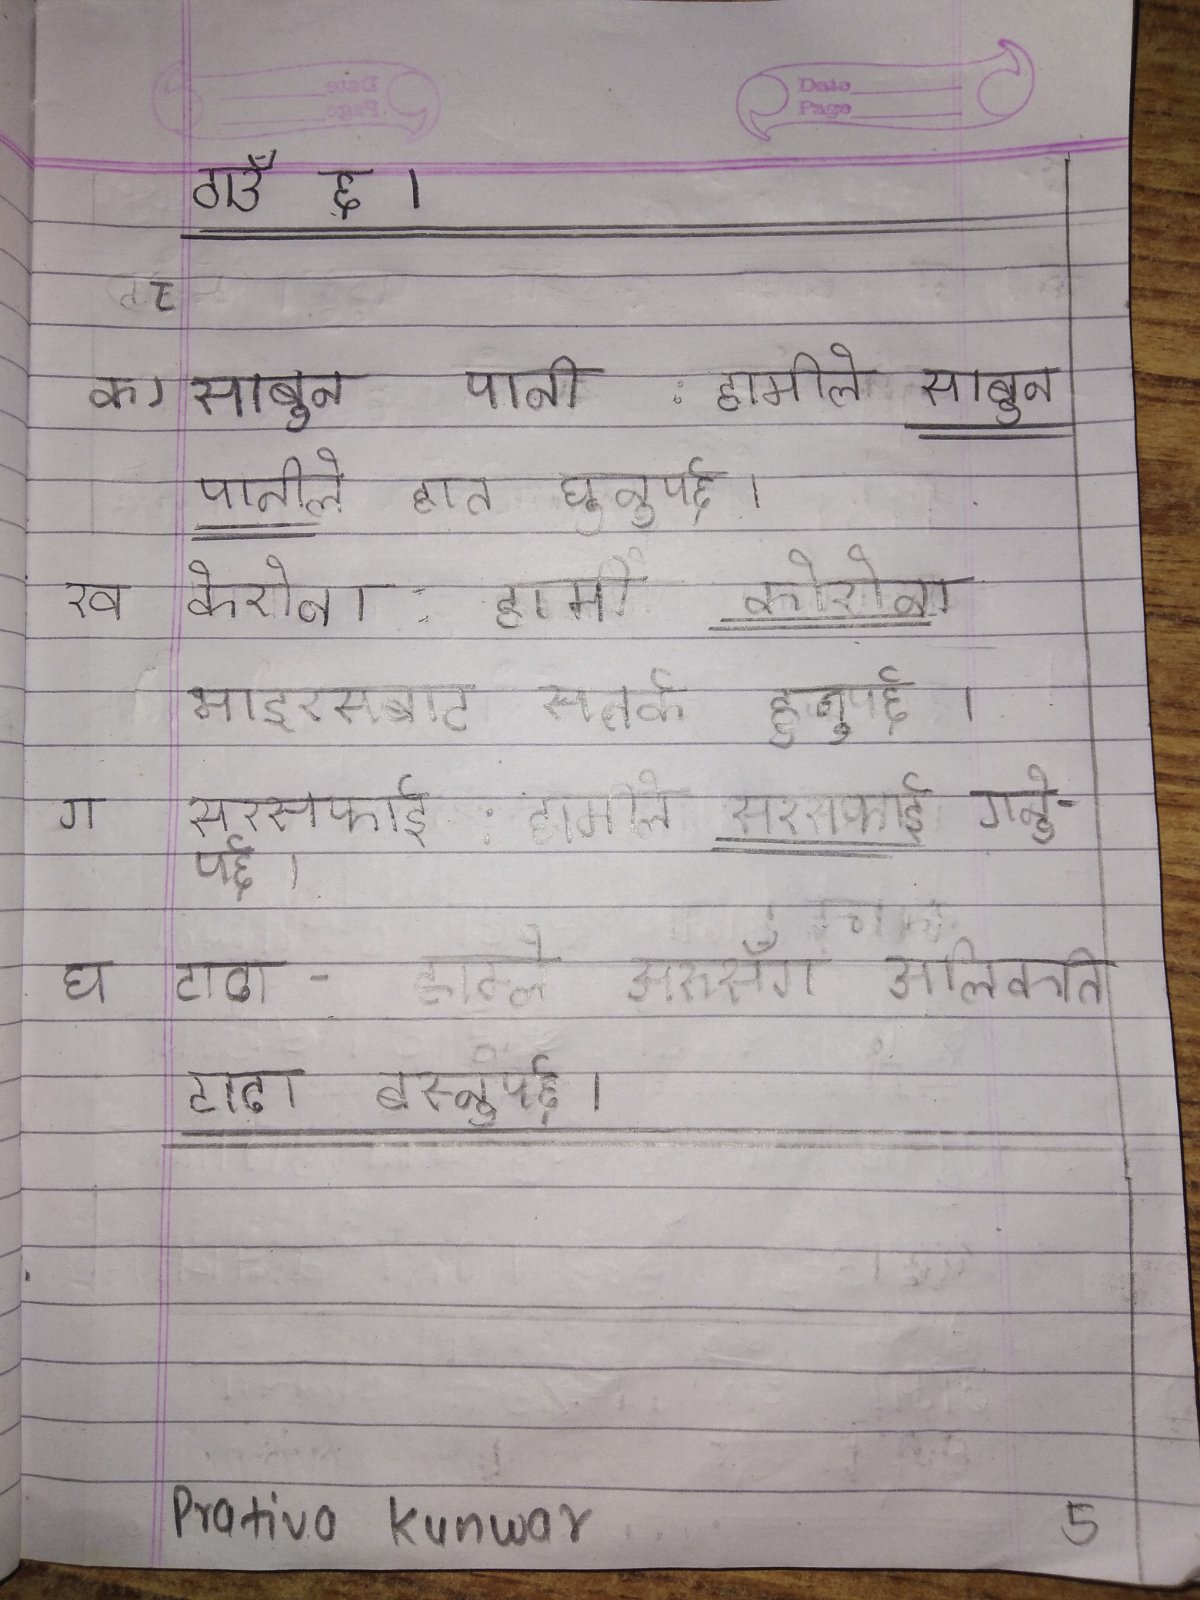 Date
Page
ठाउँ छ ।
क) साबुन पानी : हामीले साबुन
पानीले हात धुनुपर्छ ।
ख केरोना : हामी कोरोना
भाइरसबाट सतर्क हुनुपर्छ ।
ग सरसफाई : हामीले सरसफाई गर्नु-
पर्छ ।
घ टाढा - हामीले अरुसँग अलिकति
टाढा बस्नुपर्छ ।
Prativa Kunwar 5